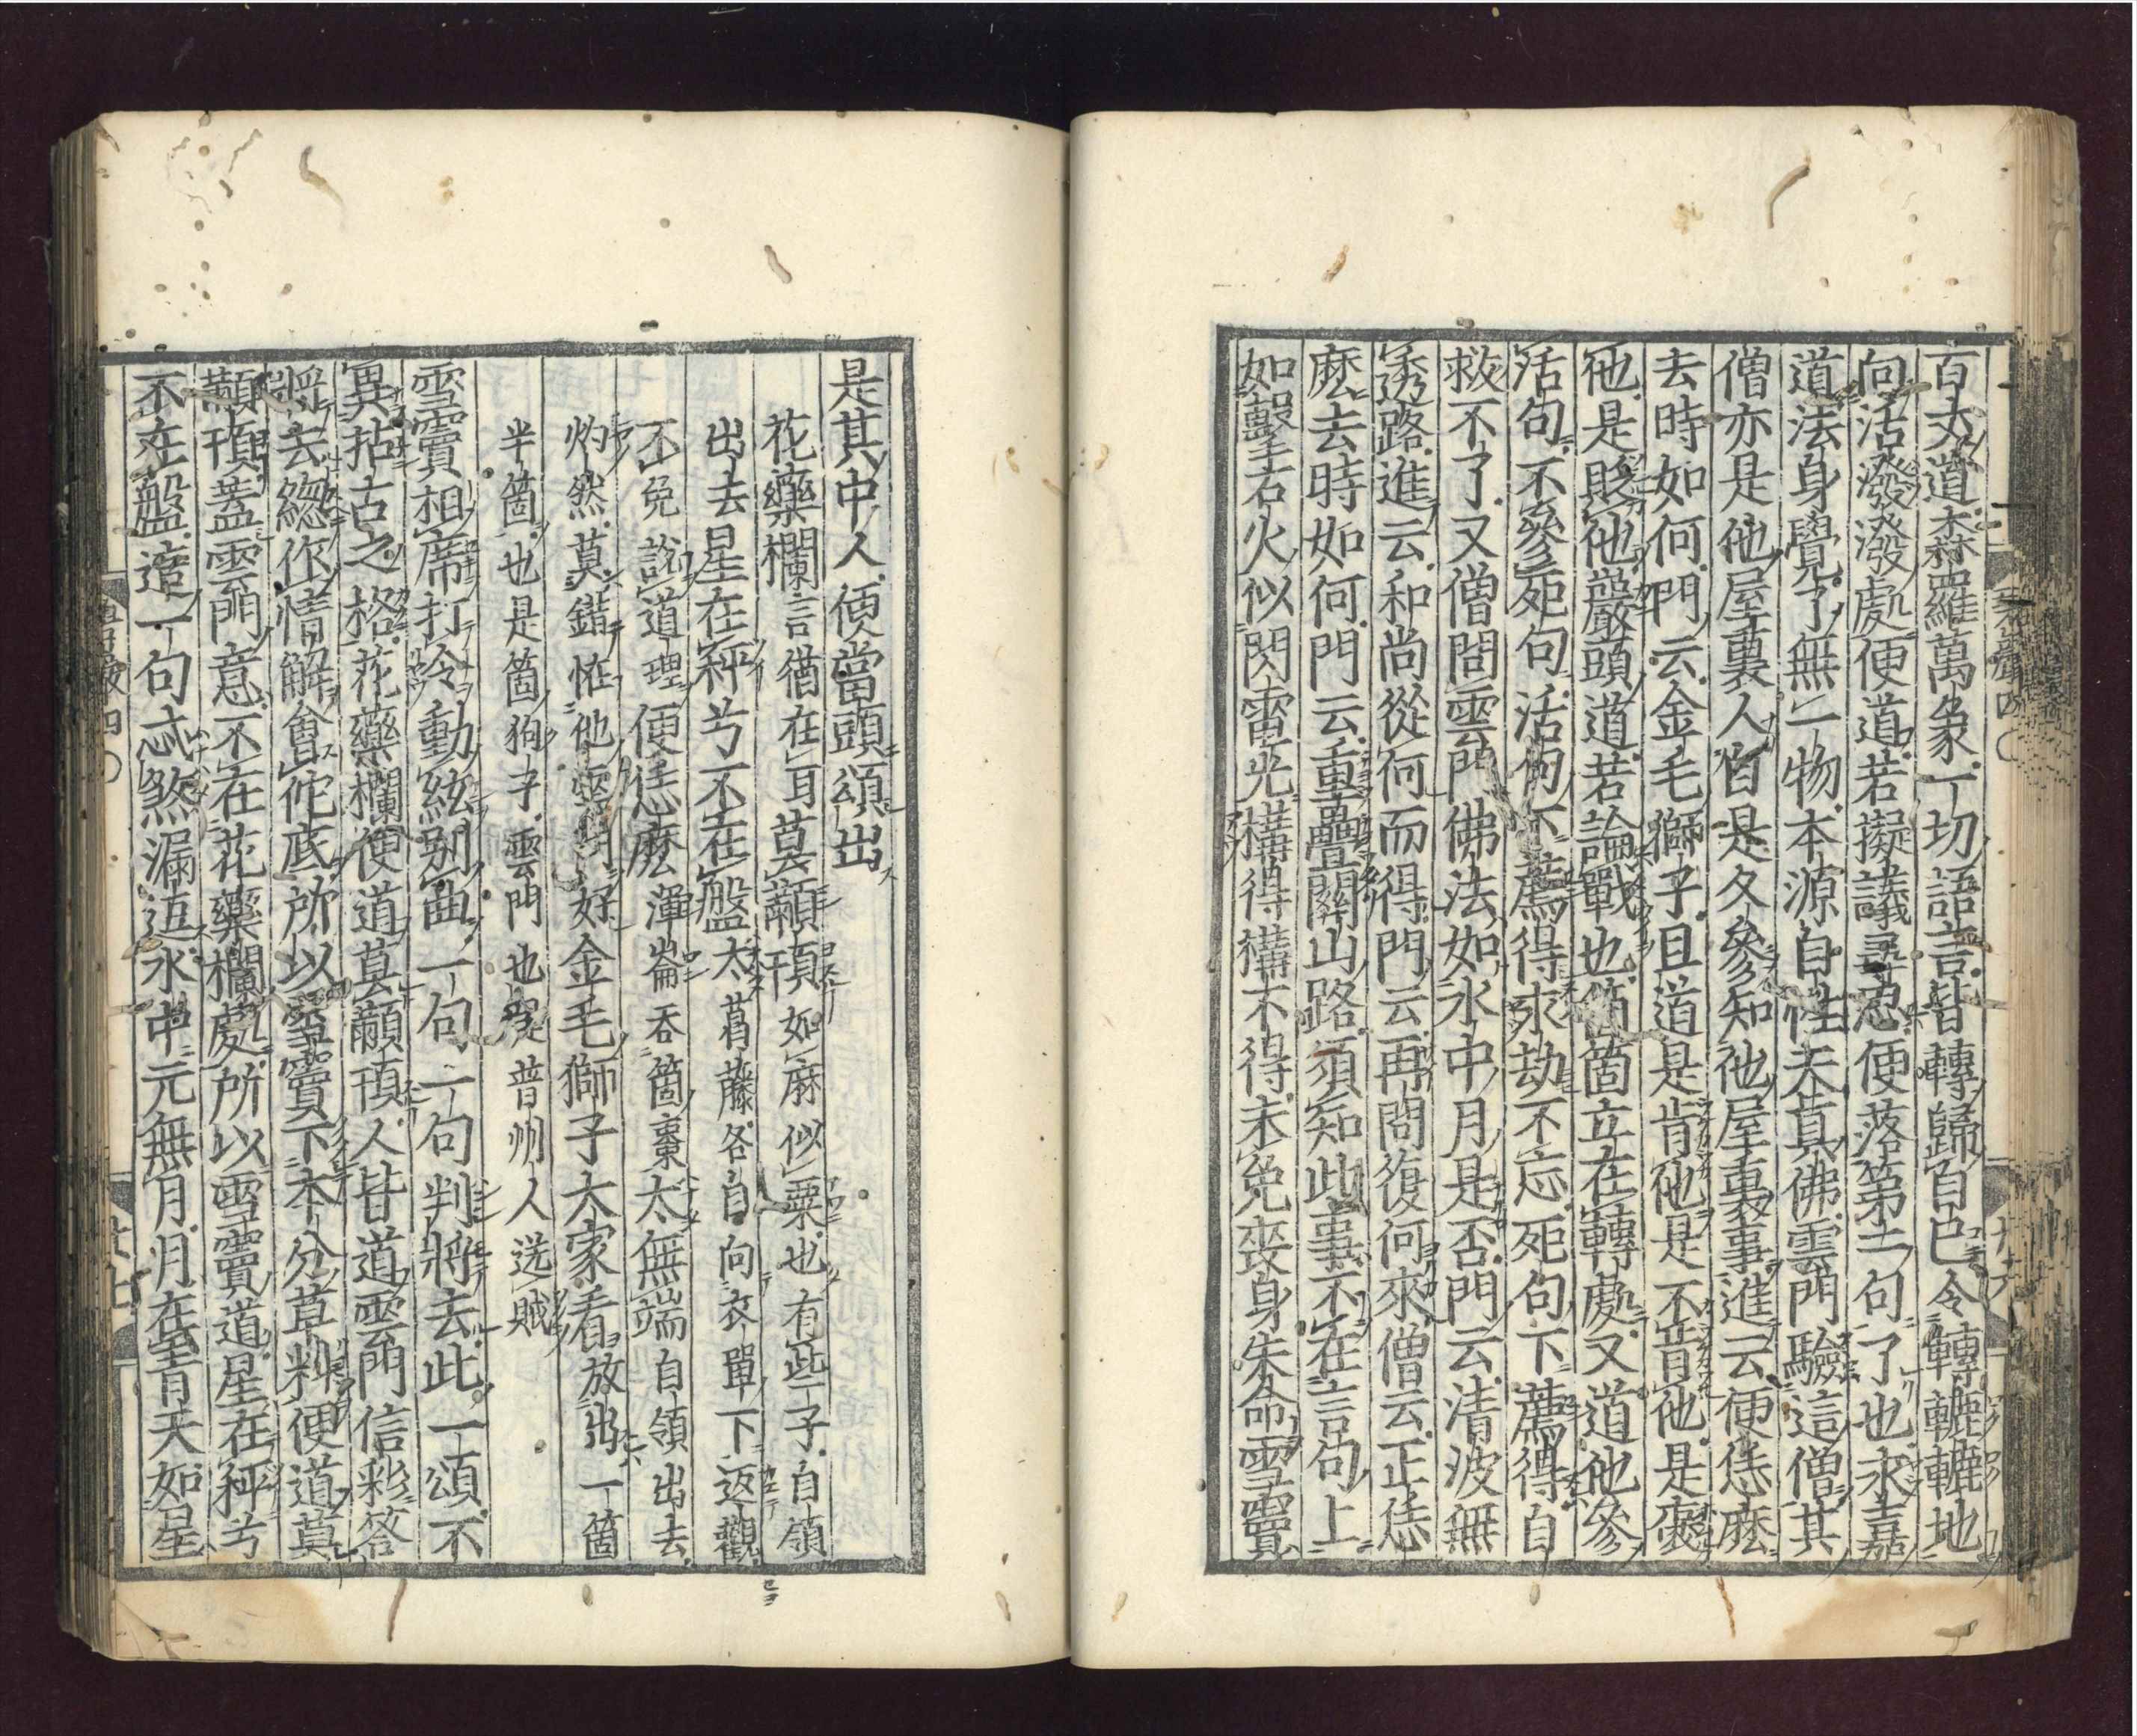 百丈道森羅萬象一切語言皆轉歸自己令轉轆轆地
向活潑潑處便道若擬議尋思便落第二句了也永嘉
道法身覺了無一物本源自性天真佛雲門驗這僧其
僧亦是他屋裏人自是久參知他屋裏事進云便恁麼
去時如何門云金毛獅子且道是肯他是不肯他是褒
他是貶他巖頭道若論戰也箇箇立在轉處又道他參
活句不參死句活句下薦得永劫不忘死句下薦得自
救不了又僧問雲門佛法如水中月是否門云清波無
透路進云和尚從何而得門云再問復何來僧云正恁
麼去時如何門云重疊關山路須知此事不在言句上
如擊石火似閃電光搆得搆不得未免喪身失命雪竇
是其中人便當頭頌出
花藥欄言猶在耳莫顢頇如麻似粟也有些子自領
出去星在秤兮不在盤太葛藤各自向衣單下返觀
不免說道理便恁麼渾崙吞箇棗太無端自領出去
灼然莫錯恠他雲門好金毛獅子大家看放出一箇
半箇也是箇狗子雲門也是普州人送賊
雪竇相席打令動絃別曲一句一句判將去此一頌不
異拈古之格花藥欄便道莫顢頇人皆道雲門信彩答
將去總作情解會佗底所以雪竇下本分草料便道莫
顢頇蓋雲門意不在花藥欄處所以雪竇道星在秤兮
不在盤這一句忒煞漏逗水中元無月月在青天如星